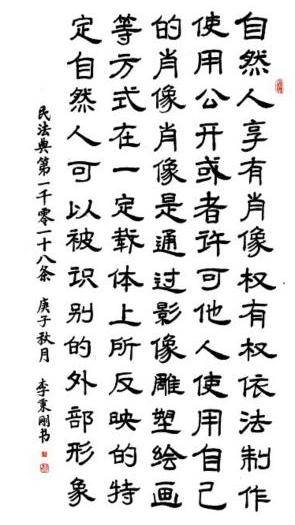 自然人享有肖像权有权依法制作
使用公开或者许可他人使用自己
的肖像肖像是通过影像雕塑绘画
等方式在一定载体上所反映的特
定自然人可以被识别的外部形象
民法典第一千零一十八条 庚子秋月 李秉刚书